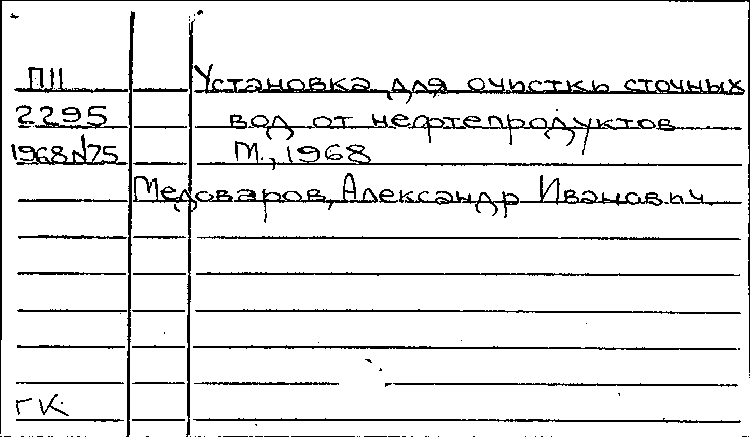 П11 Установка для очистки сточных
2295 вод от нефтепродуктов
1968N75 М., 1968
Медоваров, Александр Иванович
ГК